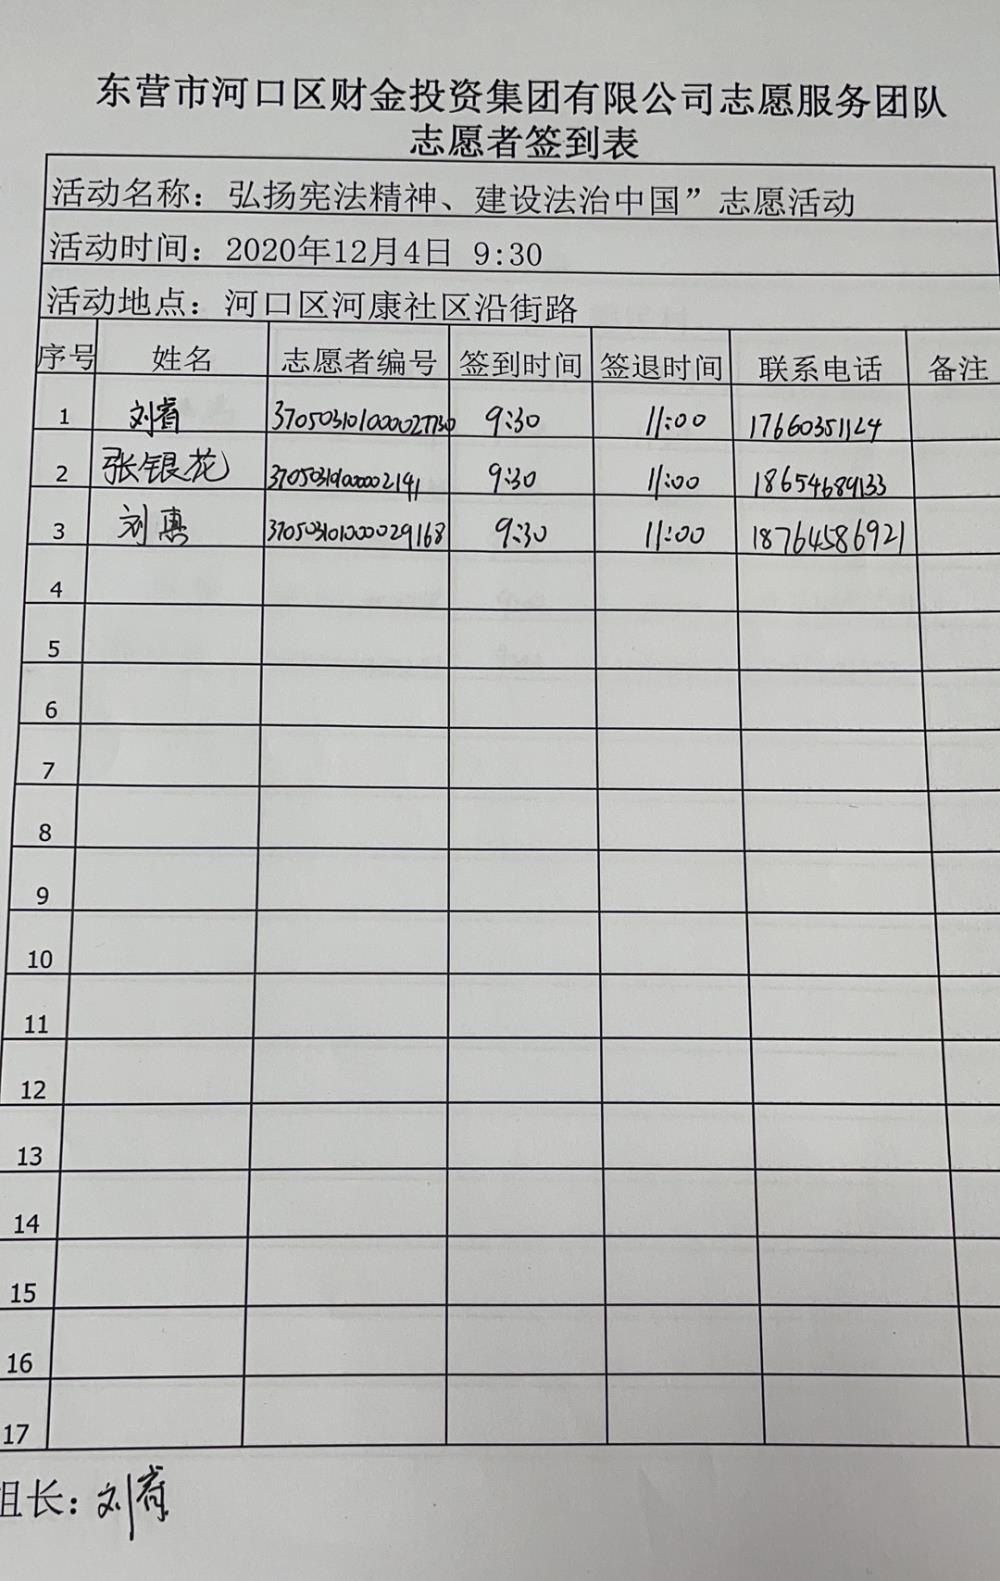 东营市河口区财金投资集团有限公司志愿服务团队
志愿者签到表
活动名称：弘扬宪法精神、建设法治中国”志愿活动
活动时间：2020年12月4日 9:30
活动地点：河口区河康社区沿街路
序号 姓名 志愿者编号 签到时间 签退时间 联系电话 备注
1 刘睿 370503101000027730 9:30 11:00 17660351124
2 张银花 9:30 11:00 18654689133
3 刘惠 370503101000029168 9:30 11:00 18764586921
4
5
6
7
8
9
10
11
12
13
14
15
16
17
组长：刘睿